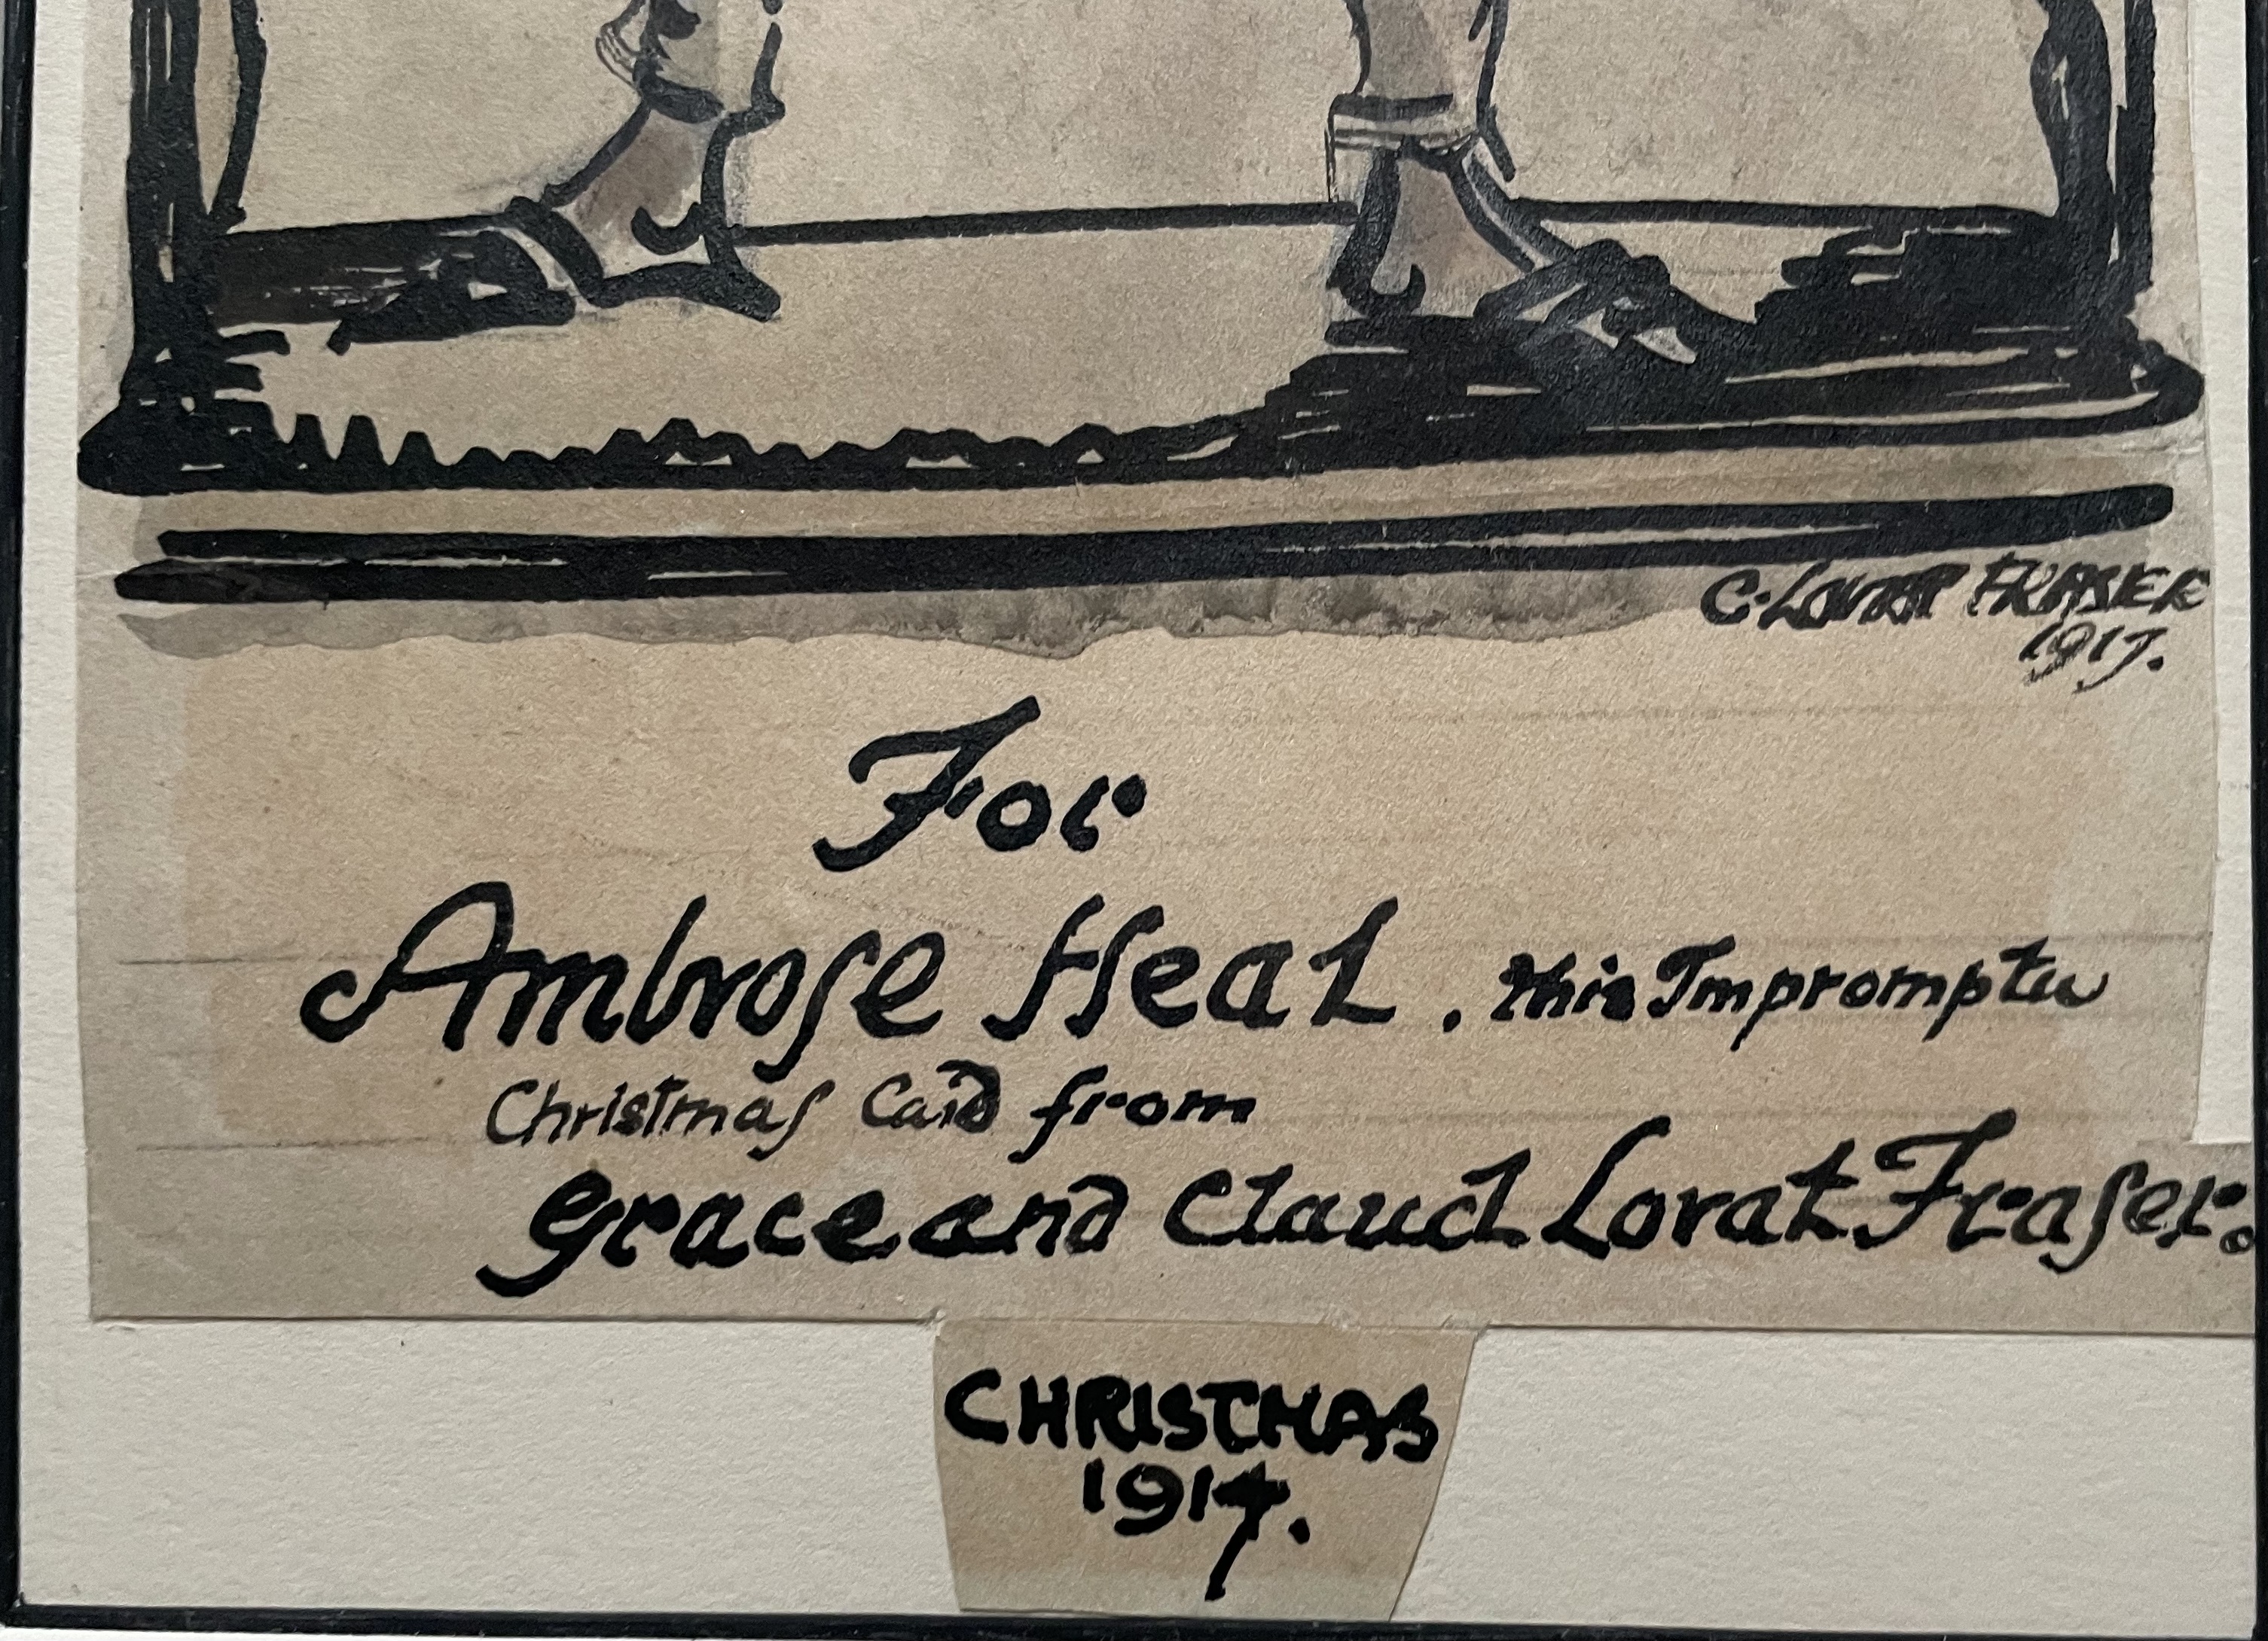 C. LOVAT FRASER
1917.
For
Ambrose Heal. this Impromptu
Christmas Card from
Grace and Claud Lovat Fraser.
CHRISTMAS
1917.